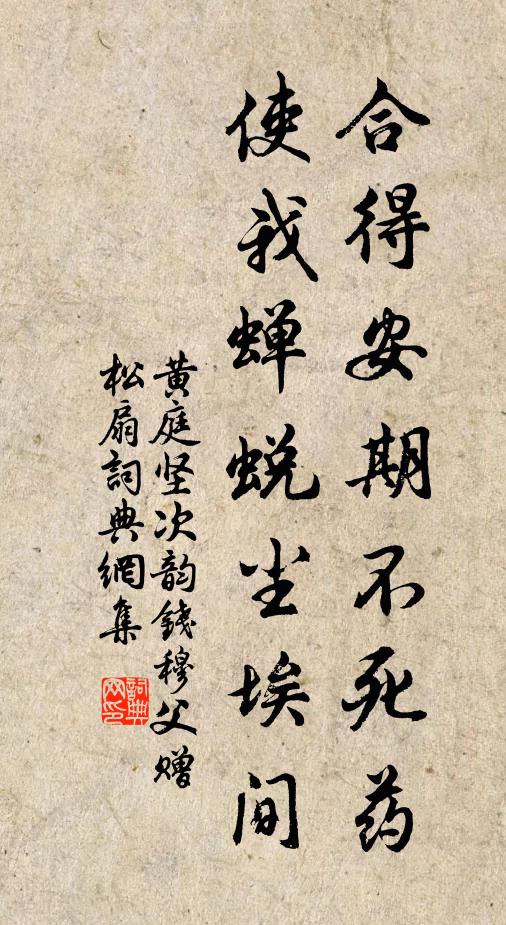 合得安期不死药
使我蝉蜕尘埃间
黄庭坚次韵錢穆父赠
松扇詞典網集
詞典
网印